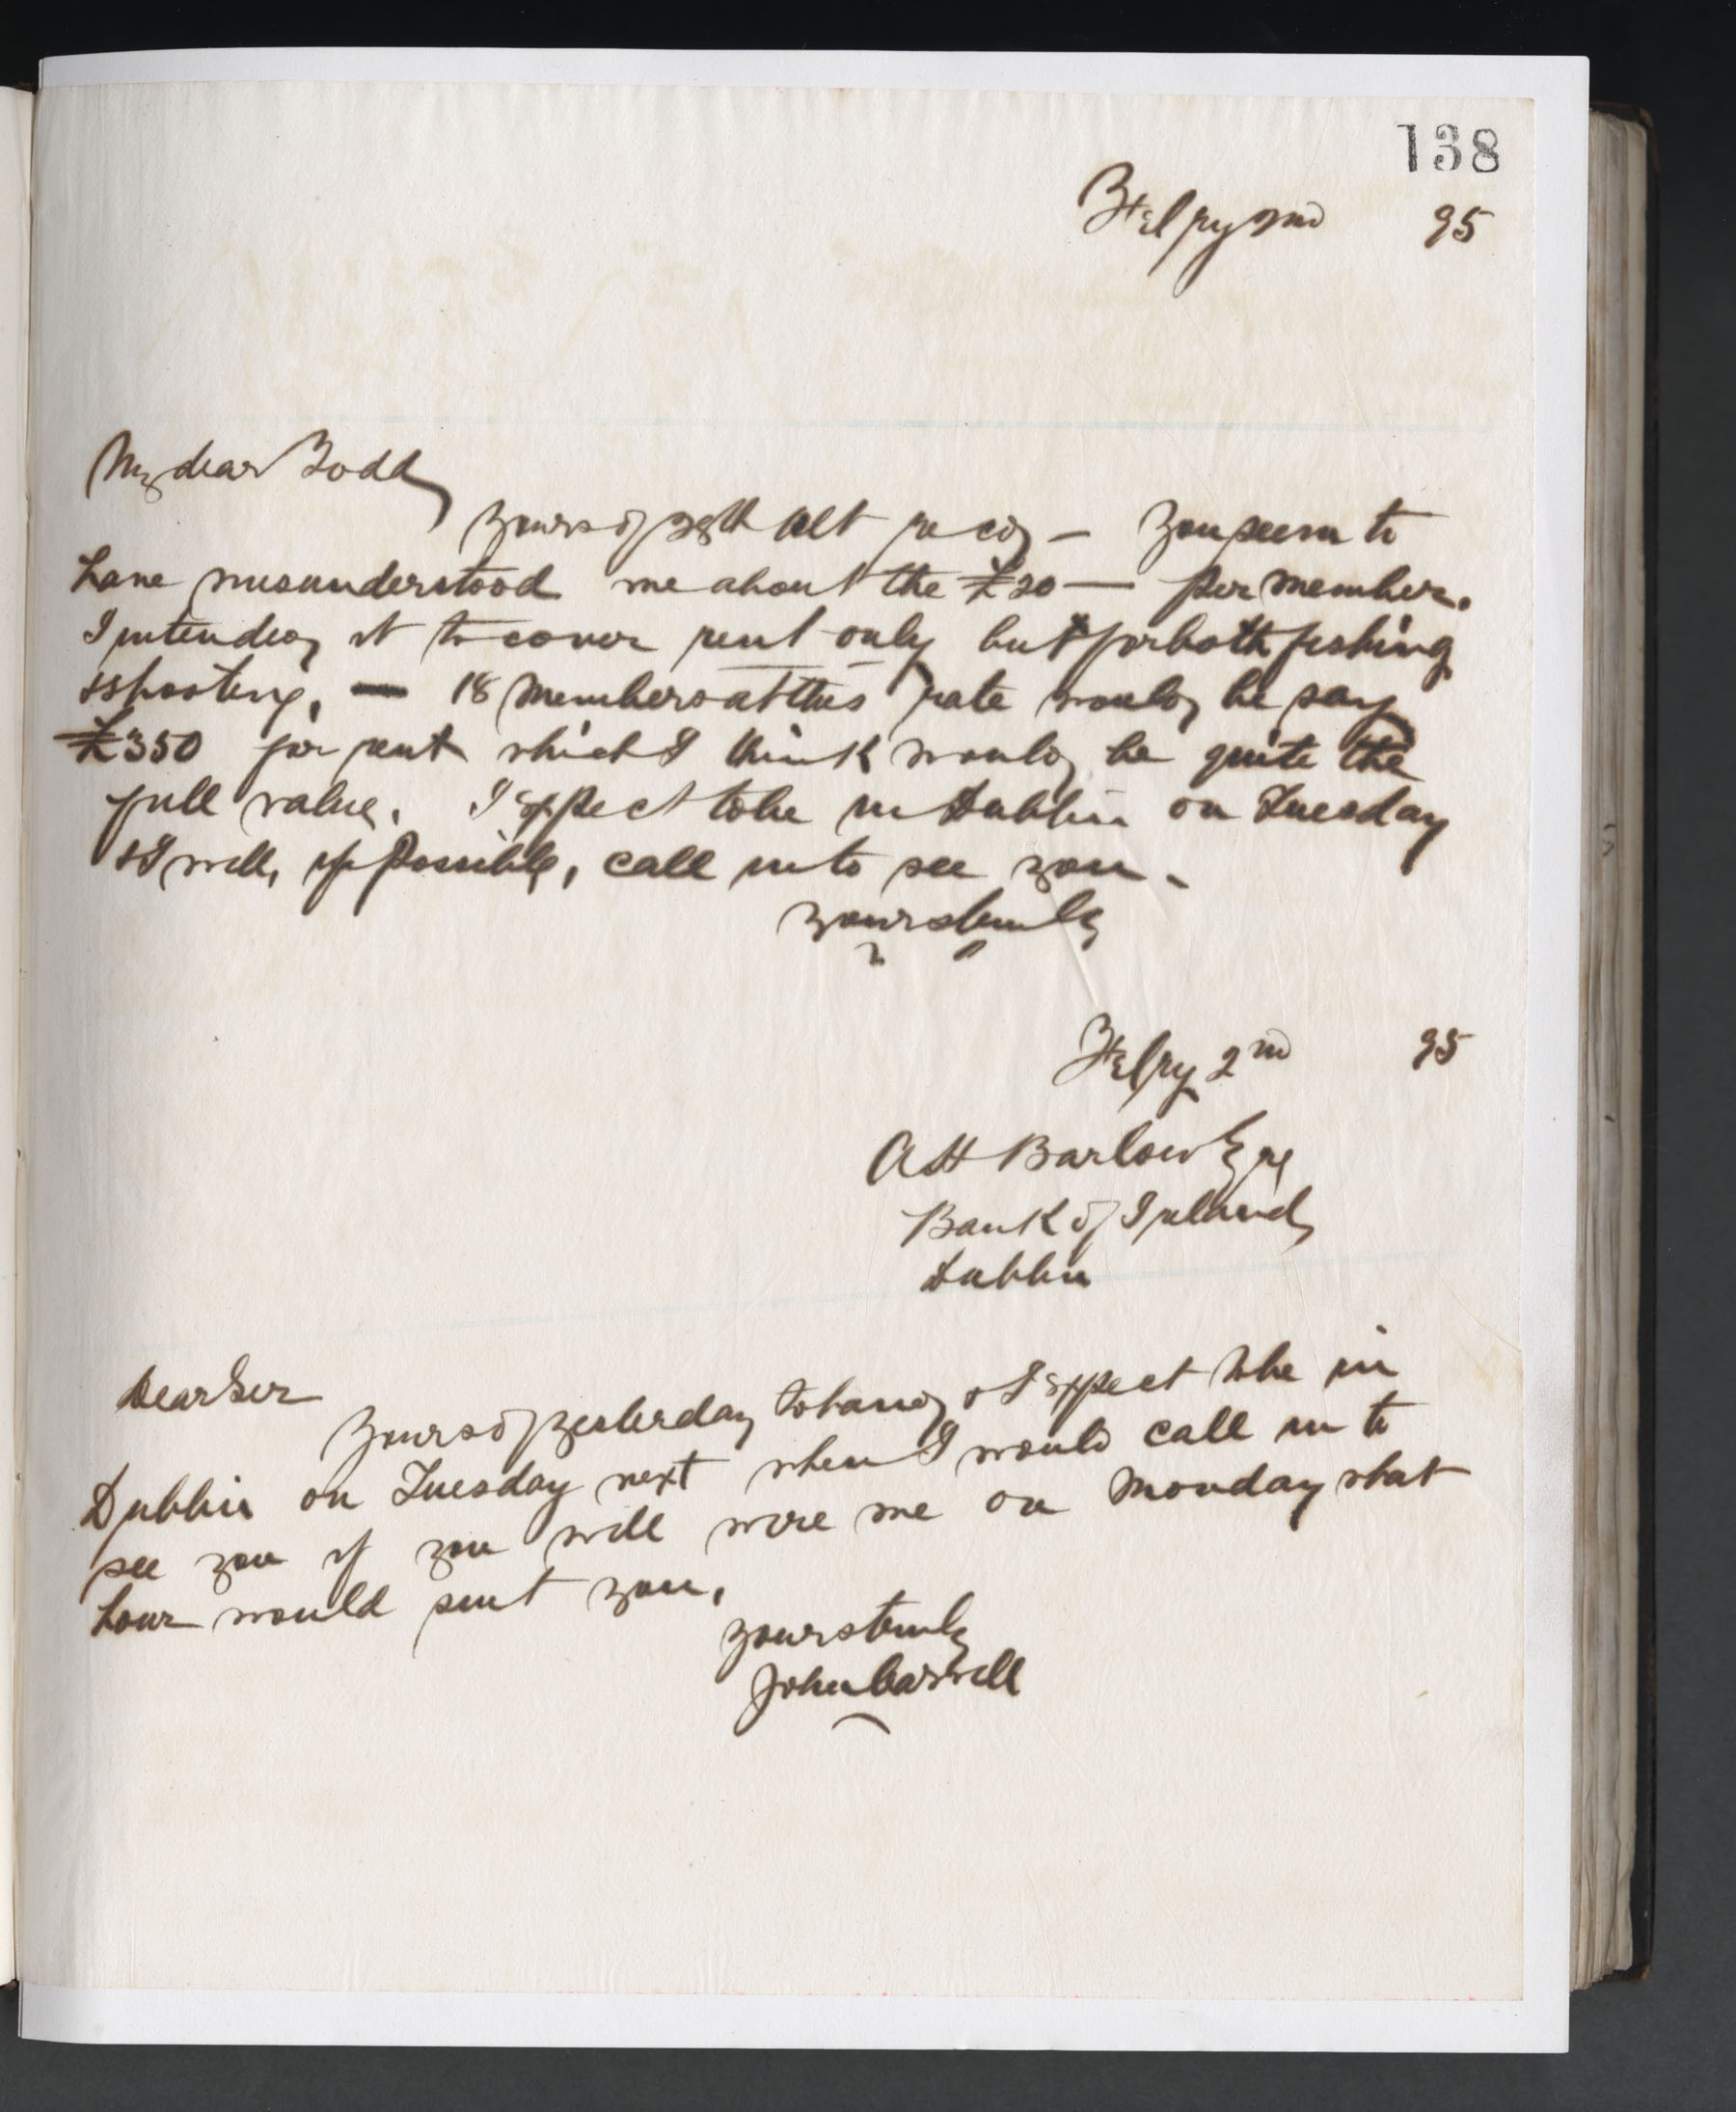 138
Feby 2nd 95
My dear Todd
Yours of 28th ult recd — You seem to
have misunderstood me about the £20 — per member.
I intended it to cover rent only but for both fishing
& shooting, — 18 members at this rate would be say
£350 for rent which I think would be quite the
full value. I expect to be in Dublin on Tuesday
& I will, if possible, call in to see you -
Yours truly
Feby 2nd 95
A H Barlow Esqre
Bank of Ireland
Dublin
Dear Sir
Yours of yesterday to hand & I expect to be in
Dublin on Tuesday next when I would call in to
see you if you will wire me on Monday what
hour would suit you.
Yours truly
John Carvill